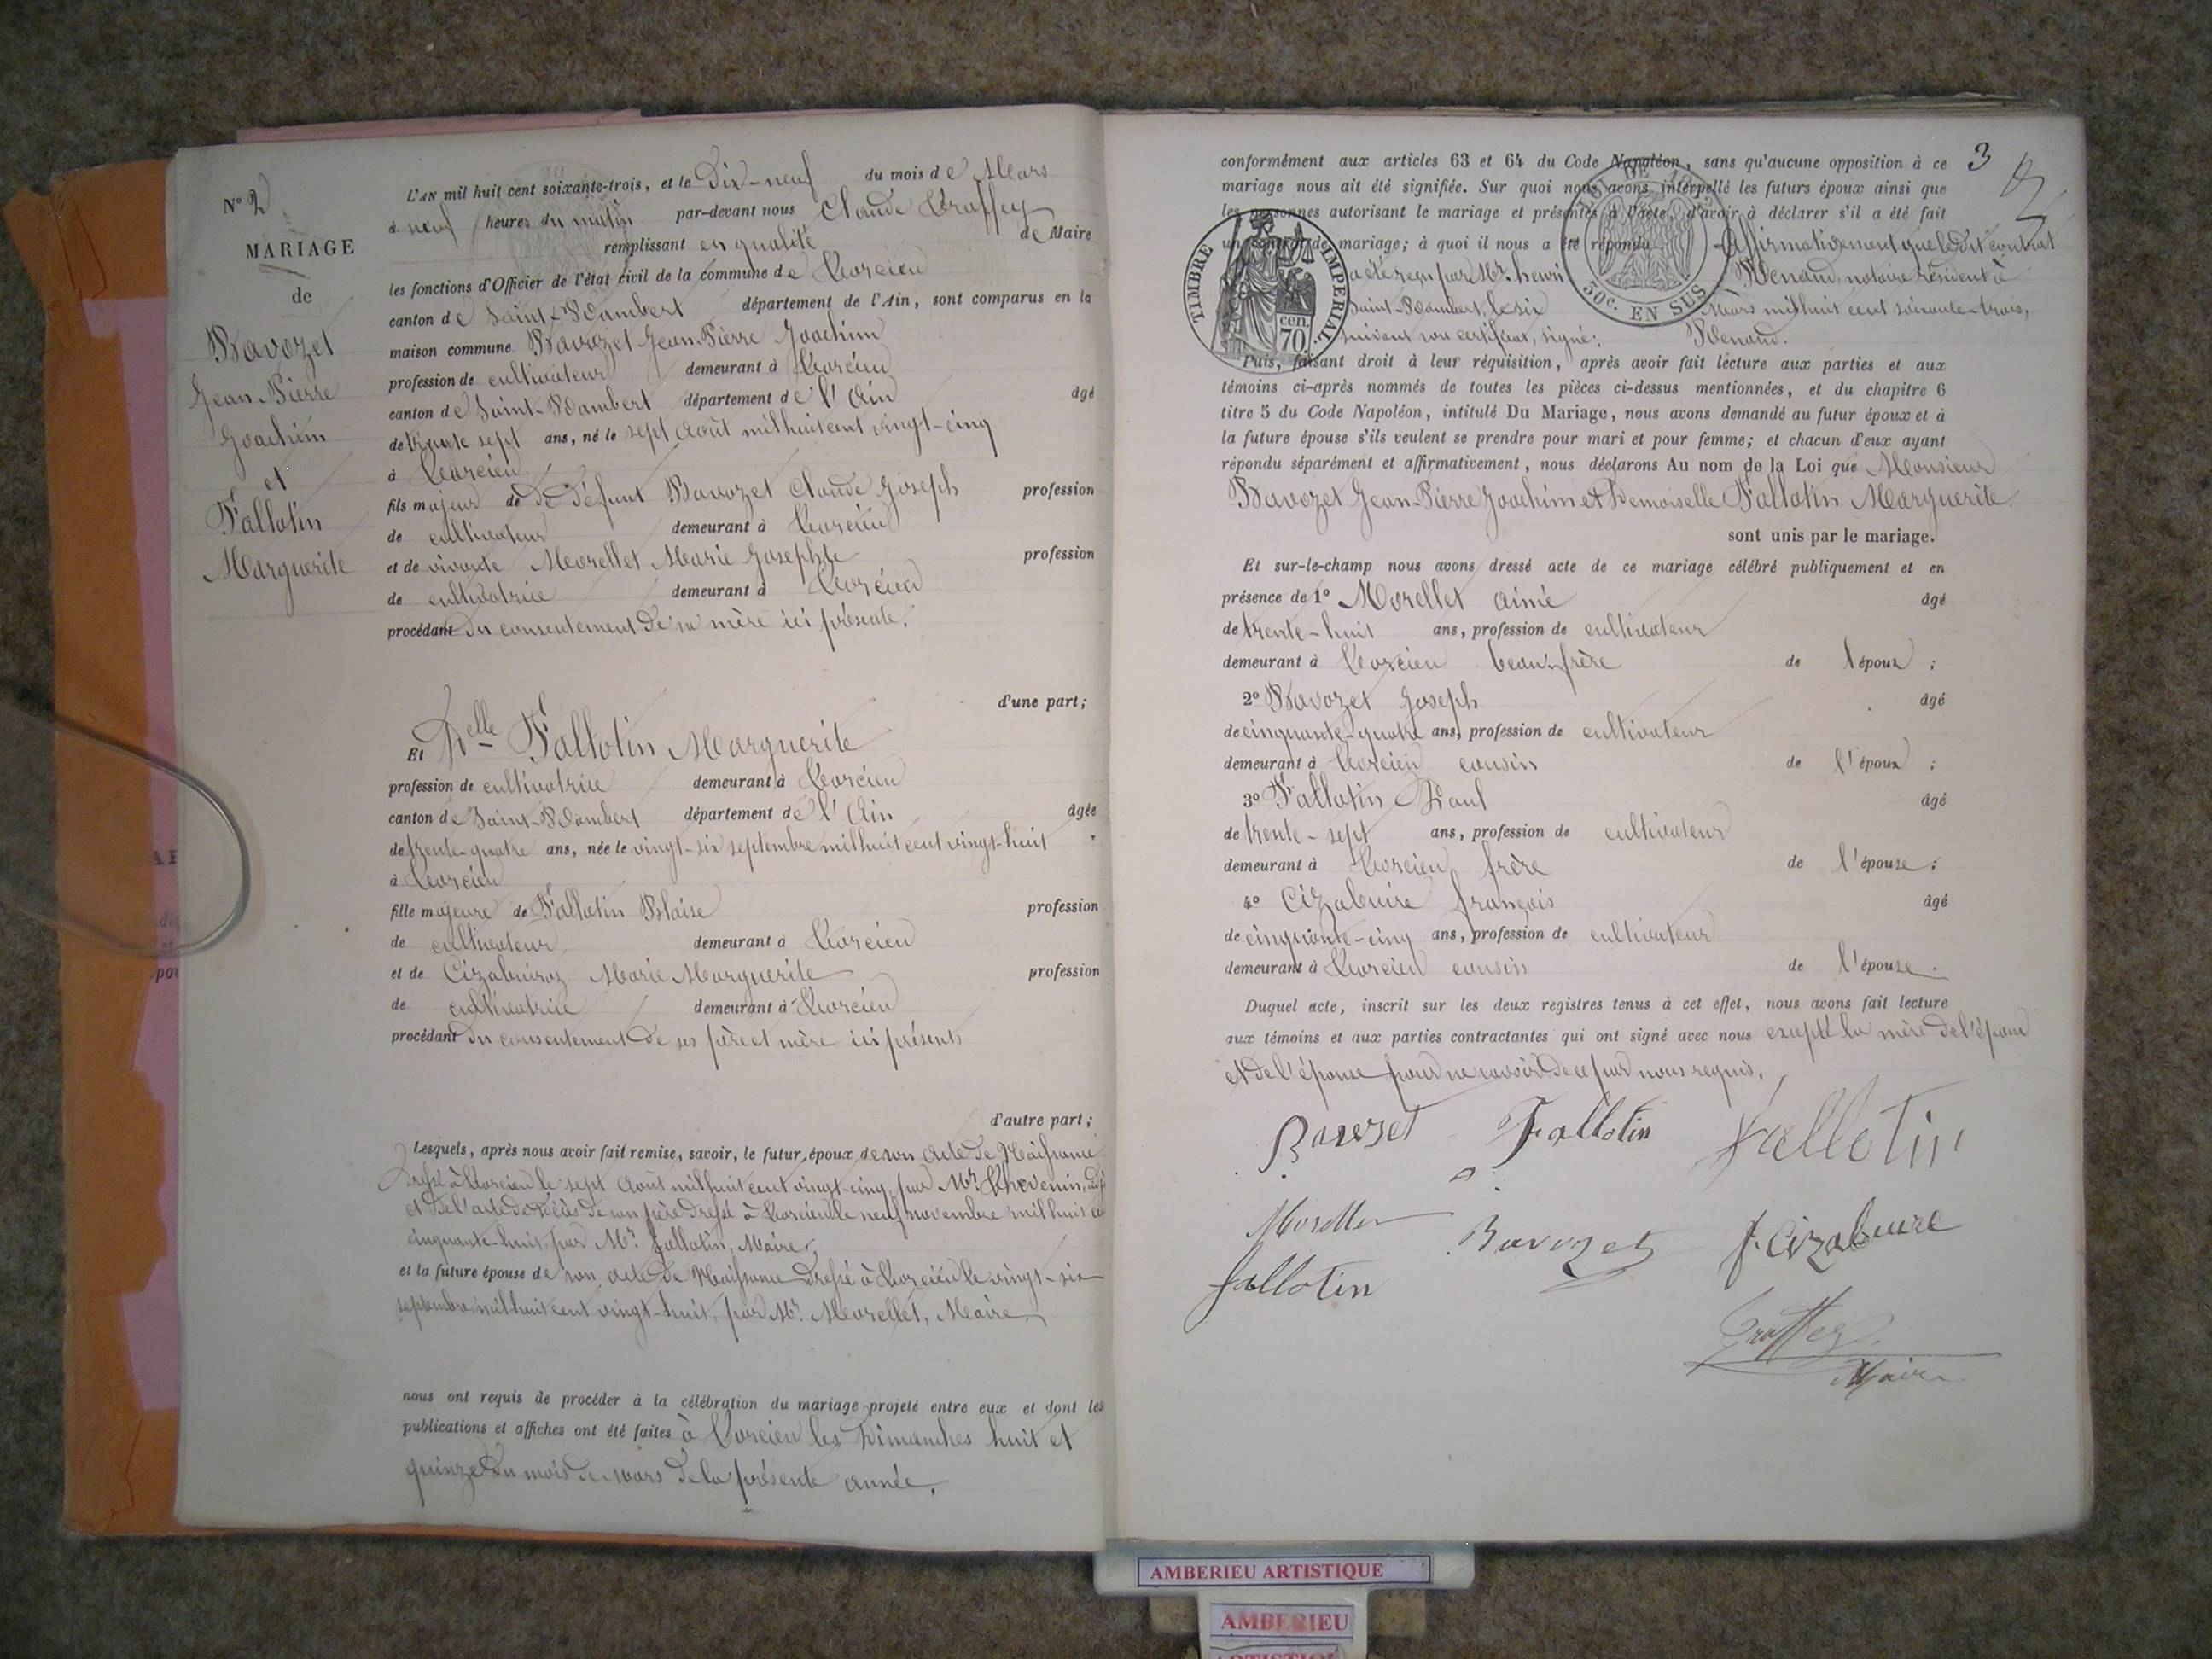 N° 2
MARIAGE
de
Bavozet
Jean-Pierre
Joachim
et
Fallotin
Marguerite
L'AN mil huit cent soixante-trois, et le Dix-neuf du mois de Mars
à neuf heures du matin par-devant nous Claude
remplissant en qualité de Maire
les fonctions d'Officier de l'état civil de la commune de Torcieu
canton de Saint-Rambert département de l'Ain, sont comparus en la
maison commune Bavozet Jean-Pierre Joachim
profession de cultivateur demeurant à Torcieu
canton de Saint-Rambert département de l'Ain âgé
de trente sept ans, né le sept Août mil huit cent vingt-cinq
à Torcieu
fils majeur de de défunt Bavozet Claude Joseph profession
de cultivateur demeurant à Torcieu
et de vivante Morellet Marie Josephte profession
de cultivatrice demeurant à Torcieu
procédant du consentement de sa mère ici présente.
d'une part;
Et Delle Fallotin Marguerite
profession de cultivatrice demeurant à Torcieu
canton de Saint-Rambert département de l'Ain âgée
de trente-quatre ans, née le vingt-six septembre mil huit cent vingt-huit
à Torcieu
fille majeure de Fallotin Blaise profession
de cultivateur demeurant à Torcieu
et de Marie Marguerite profession
de cultivatrice demeurant à Torcieu
procédant du consentement de ses père et mère ici présents
d'autre part;
Lesquels, après nous avoir fait remise, savoir, le futur époux de son acte de Naissance
dressé à Torcieu le sept Août mil huit cent vingt-cinq, par Mr. Thevenin, adj
et de l'acte de décès de son père dressé à Torcieu le neuf novembre mil huit ce
cinquante-huit, par Mr. Fallotin, Maire,
et la future épouse de son acte de Naissance dressé à Torcieu le vingt-six
septembre mil huit cent vingt-huit, par Mr. Morellet, Maire.
nous ont requis de procéder à la célébration du mariage projeté entre eux et dont les
publications et affiches ont été faites à Torcieu les Dimanches huit et
quinze du mois de Mars de la présente année.
3
conformément aux articles 63 et 64 du Code Napoléon, sans qu'aucune opposition à ce
mariage nous ait été signifiée. Sur quoi nous avons interpellé les futurs époux ainsi que
les personnes autorisant le mariage et présentes à l'acte, d'avoir à déclarer s'il a été fait
un contrat de mariage; à quoi il nous a été répondu Affirmativement que ledit contrat
a été reçu par Mr. henri Renaud, notaire résident à
Saint-Rambert, le six Mars mil huit cent soixante-trois,
suivant son certificat, signé: Renaud.
TIMBRE IMPERIAL
cen. 70
50c. EN SUS
Puis, faisant droit à leur réquisition, après avoir fait lecture aux parties et aux
témoins ci-après nommés de toutes les pièces ci-dessus mentionnées, et du chapitre 6
titre 5 du Code Napoléon, intitulé Du Mariage, nous avons demandé au futur époux et à
la future épouse s'ils veulent se prendre pour mari et pour femme; et chacun d'eux ayant
répondu séparément et affirmativement, nous déclarons Au nom de la Loi que Monsieur
Bavozet Jean-Pierre Joachim et Demoiselle Fallotin Marguerite
sont unis par le mariage.
Et sur-le-champ nous avons dressé acte de ce mariage célébré publiquement et en
présence de 1° Morellet aimé âgé
de trente-huit ans, profession de cultivateur
demeurant à Torcieu beau-frère de l'époux ;
2° Bavozet Joseph âgé
de cinquante-quatre ans, profession de cultivateur
demeurant à Torcieu cousin de l'époux ;
3° Fallotin Paul âgé
de trente-sept ans, profession de cultivateur
demeurant à Torcieu frère de l'épouse ;
4° Cizabuire françois âgé
de cinquante-cinq ans, profession de cultivateur
demeurant à Torcieu cousin de l'épouse.
Duquel acte, inscrit sur les deux registres tenus à cet effet, nous avons fait lecture
aux témoins et aux parties contractantes qui ont signé avec nous excepté la mère de l'époux
et de l'épouse pour ne savoir de ce par nous requis.
Bavozet Fallotin Fallotin
Bavozet f. Cizabuire
fallotin
Maire
AMBERIEU ARTISTIQUE
AMBERIEU
ARTISTIQUE